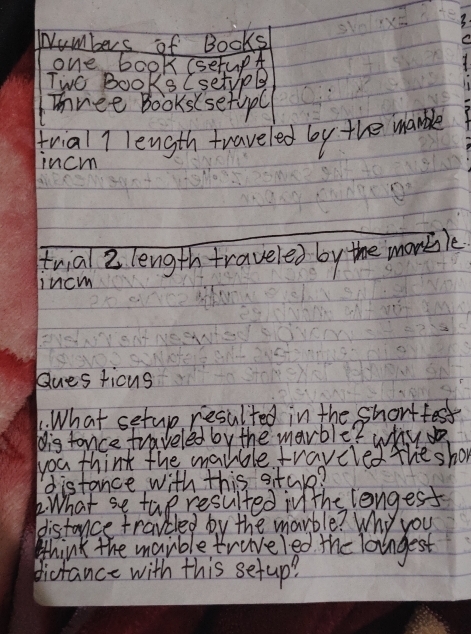 Numbers of Books
one book (setup A
Two Books (setup B
Three Books (setup C
trial 1 length traveled by the marble
incm
trial 2 length traveled by the marble
incm
Ques ticus
1. What setup resulted in the shorttest
distance traveled by the marble? why do
you think the marble traveled the shor
distance with this situp?
2. What se tup resulted in the longest
distance traveled by the marble? Why you
think the marble traveled the longest
distance with this setup?